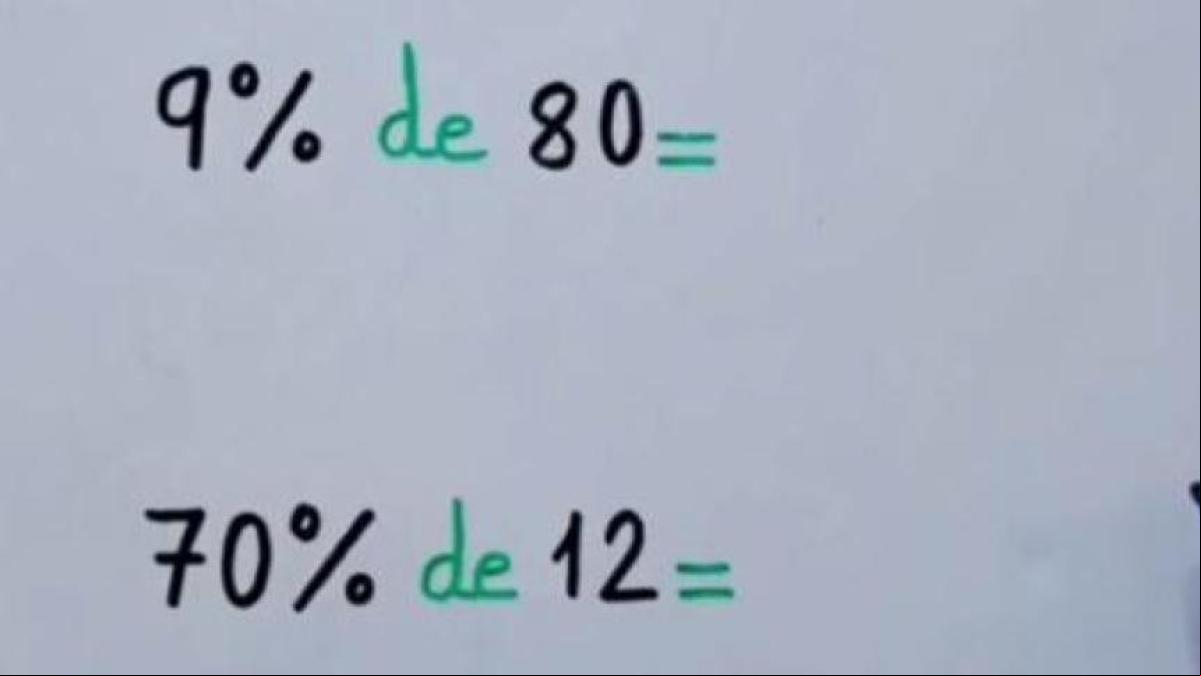 9% de 80=
70% de 12=